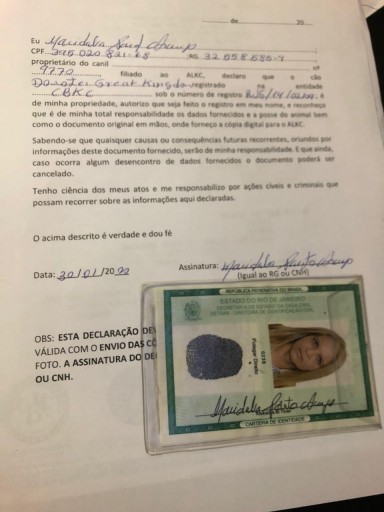 de 20
Eu
CPF RG 32.558.585-7
proprietário do canil nº
9770 filiado ao ALKC, declaro que o cão
Great Kingdom registrado na entidade
CBKC sob o número de registro é
de minha propriedade, autorizo que seja feito o registro em meu nome, e reconheço
que é de minha total responsabilidade os dados fornecidos e a posse do animal bem
como o documento original em mãos, onde forneço a cópia digital para o ALKC.
Sabendo-se que quaisquer causas ou consequências futuras recorrentes, oriundos por
informações deste documento fornecido, serão de minha responsabilidade. E que ainda,
caso ocorra algum desencontro de dados fornecidos o documento poderá ser
cancelado.
Tenho ciência dos meus atos e me responsabilizo por ações cíveis e criminais que
possam recorrer sobre as informações aqui declaradas.
O acima descrito é verdade e dou fé
Data: 30/01/20 Assinatura:
(Igual ao RG ou CNH)
OBS: ESTA DECLARAÇÃO
VÁLIDA COM O ENVIO DAS
FOTO. A ASSINATURA DO
OU CNH.
REPÚBLICA FEDERATIVA DO BRASIL
ESTADO DO RIO DE JANEIRO
SECRETARIA DE ESTADO DA CASA CIVIL
Polegar Direito
CARTEIRA DE IDENTIDADE